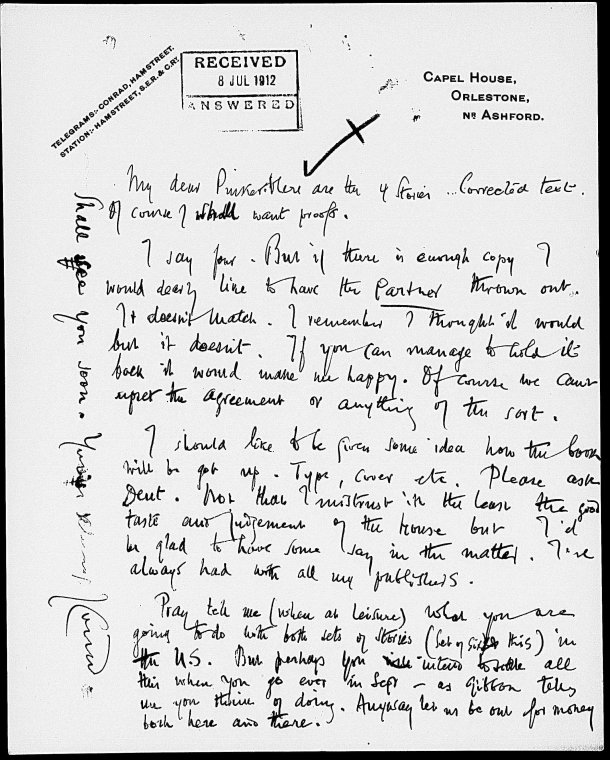 TELEGRAMS:- CONRAD, HAMSTREET.
STATION:- HAMSTREET, S.E.R. & C.RY.
RECEIVED
8 JUL 1912
ANSWERED
CAPEL HOUSE,
ORLESTONE,
NR ASHFORD.
My dear Pinker. Here are the 4 Stories ... Corrected text.
Of course I shall want proofs.
I say four. But if there is enough copy I
would dearly like to have the Partner thrown out.
It doesn't match. I remember I thought it would
but it doesn't. If you can manage to hold it
back it would make me happy. Of course we can't
upset the agreement or anything of the sort.
I should like to be given some idea how the book
will be got up. Type, cover etc. Please ask
Dent. Not that I mistrust in the least the good
taste and judgement of the house but I'd
be glad to have some say in the matter. I've
always had with all my publishers.
Pray tell me (when at leisure) what you are
going to do with both sets of stories (Set of Six & this) in
the U.S. But perhaps you intend all
this when you go over in Sept - as Gibbon tells
me you think of doing. Anyway let us be out for money
both here and there.
Shall see you soon. Yours
Conrad